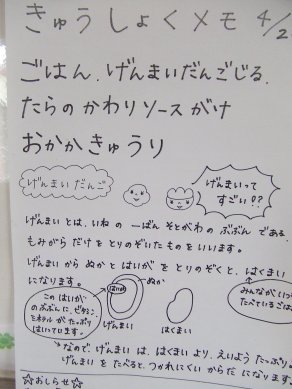 きゅうしょくメモ 4/2
ごはん、げんまいだんごじる、
たらのかわりソースがけ
おかかきゅうり
げんまいだんご
げんまいって
すごい!?
げんまいとは、いねの一ばんそとがわのぶぶんである、
もみがらだけをとりのぞいたものをいいます。
げんまいからぬかとはいがをとりのぞくと、はくまい
になります。
はいが
ぬか
このはいが
のぶぶんに、ビタミン、
ミネラルがたっぷり
はいっています。
げんまい
はくまい
みんながいつも
たべているごはん
なので、げんまいは、はくまいより、えいようたっぷり。
げんまいをたべると、つかれにくいからだになります
☆おしらせ☆